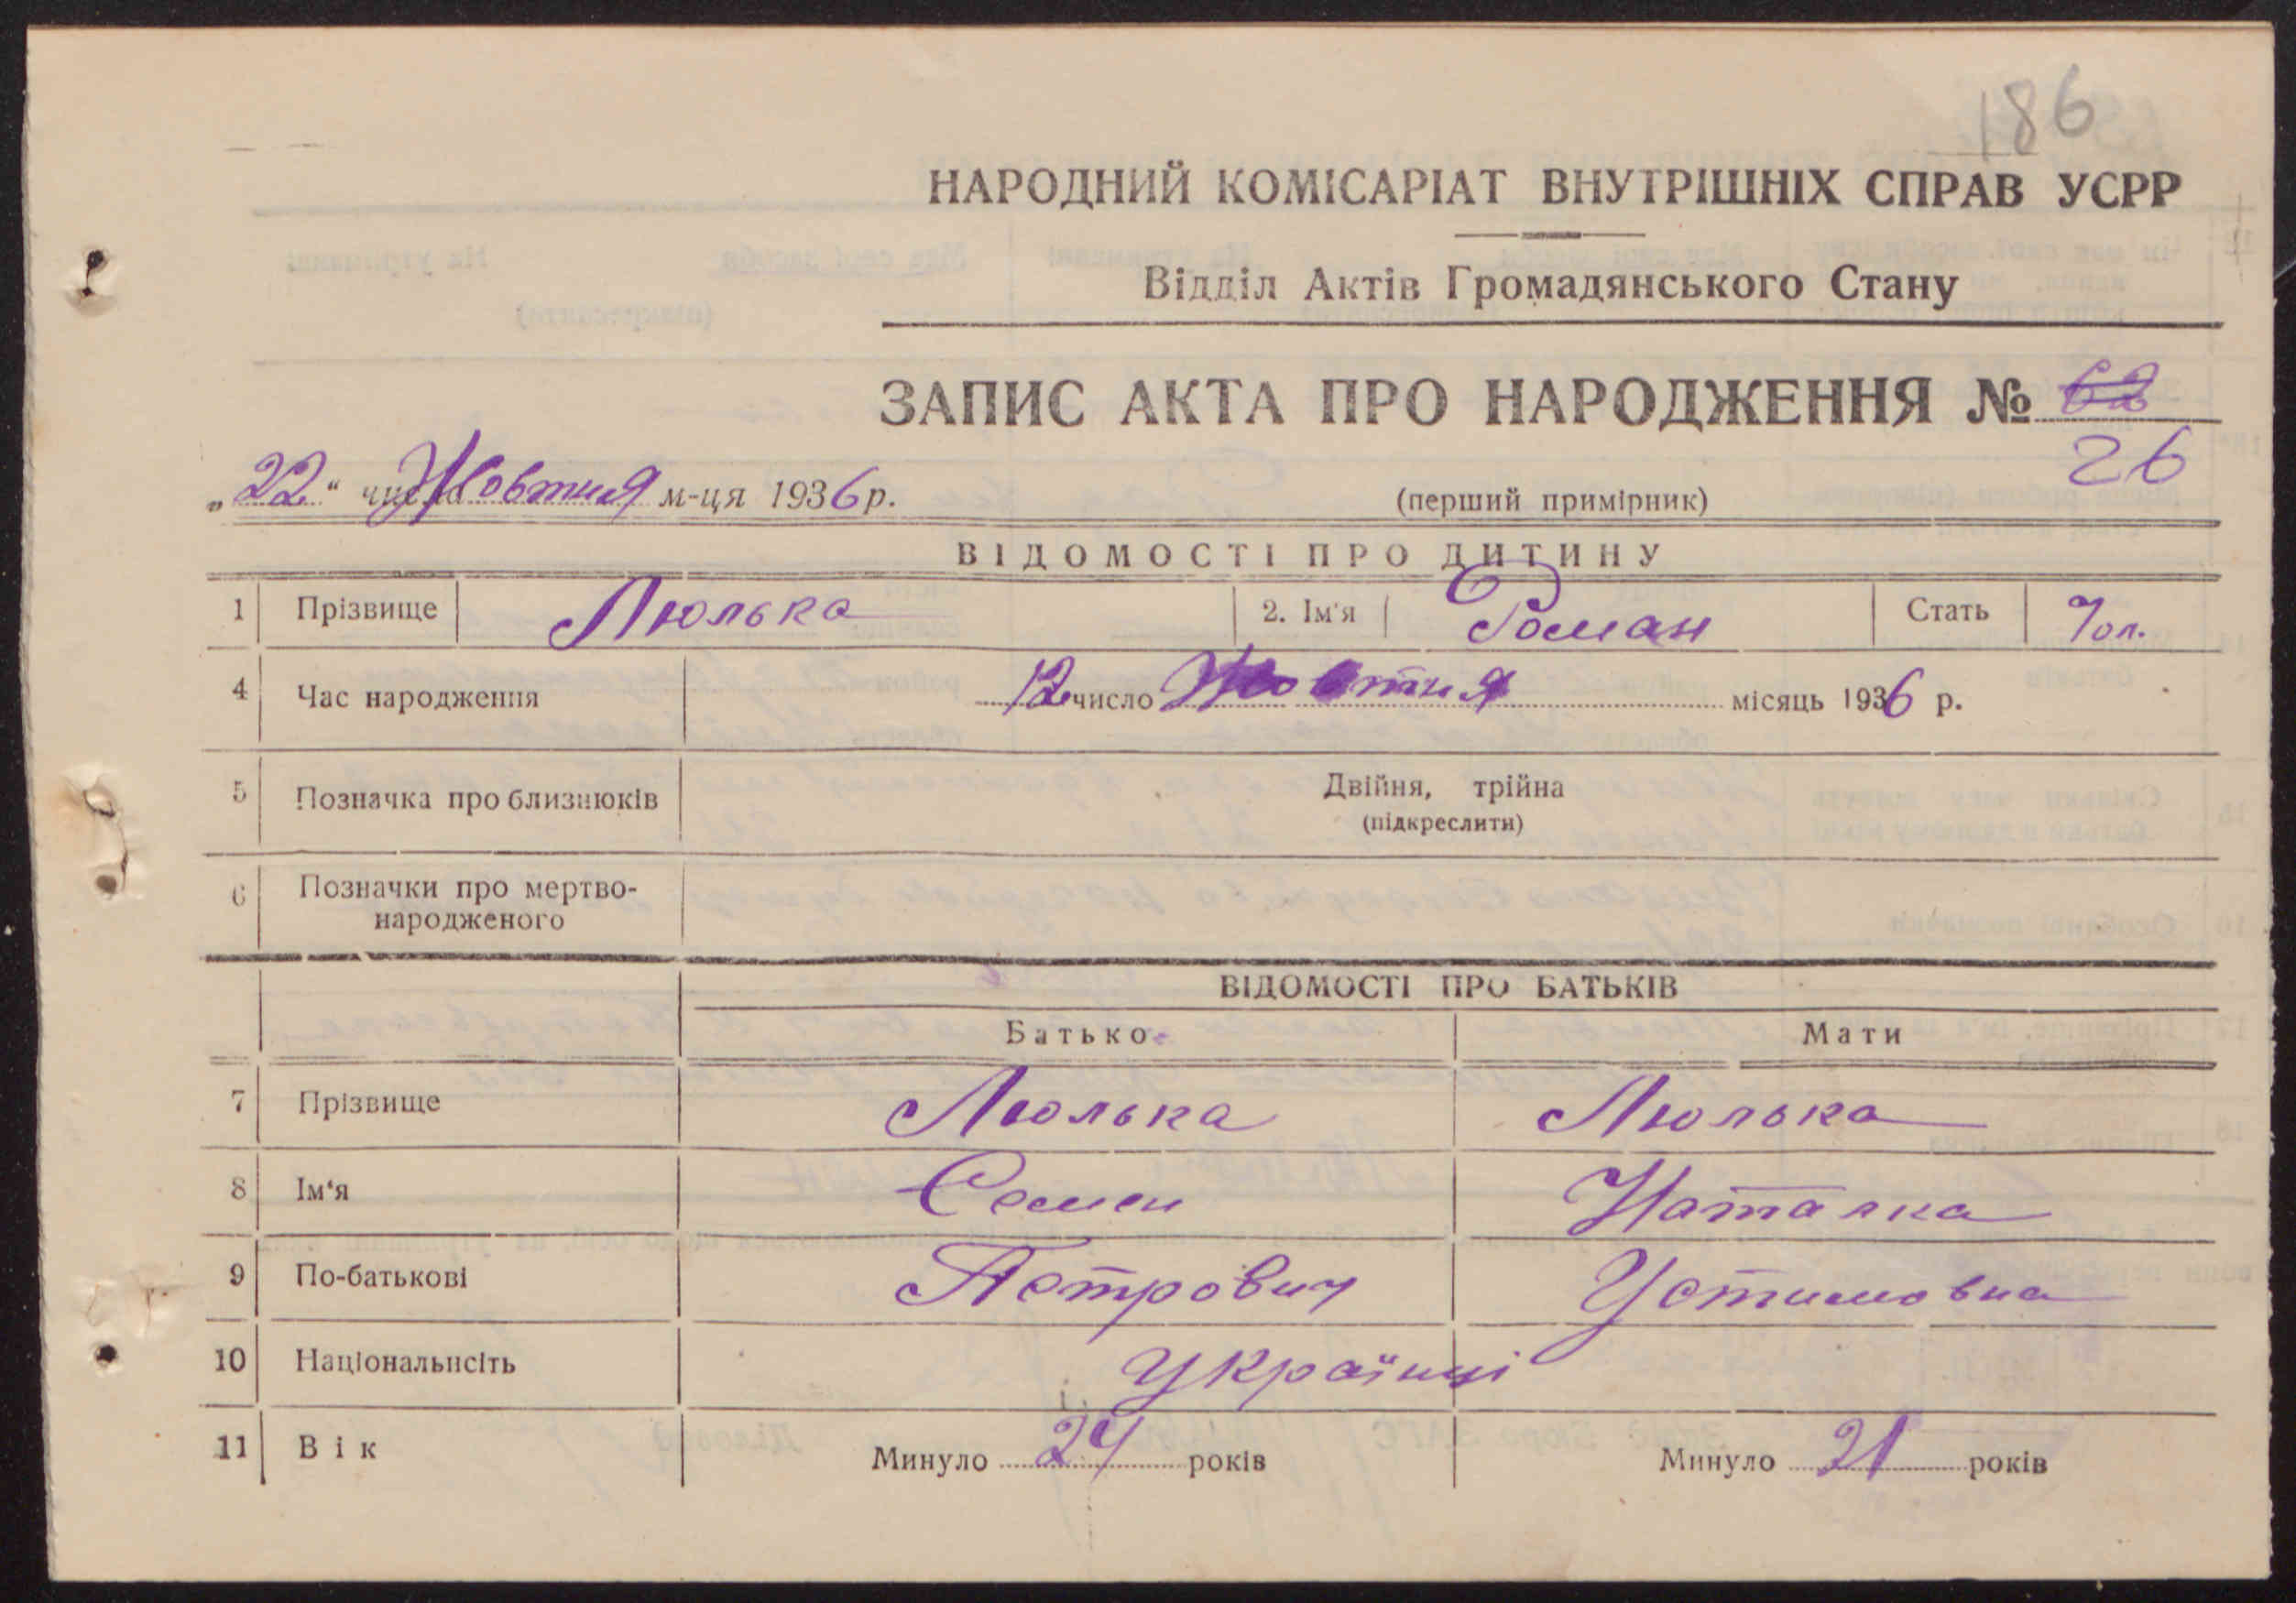 186
НАРОДНИЙ КОМІСАРІАТ ВНУТРІШНІХ СПРАВ УСРР
Відділ Актів Громадянського Стану
ЗАПИС АКТА ПРО НАРОДЖЕННЯ № 62
26
„22" числа Жовтня м-ця 1936 р.
(перший примірник)
ВІДОМОСТІ ПРО ДИТИНУ
1 Прізвище Люлька 2. Ім'я Роман Стать Чол.
4 Час народження 12 число Жовтня місяць 1936 р.
5 Позначка про близнюків Двійня, трійна
(підкреслити)
6 Позначки про мертво-
народженого
ВІДОМОСТІ ПРО БАТЬКІВ
Батько Мати
7 Прізвище Люлька Люлька
8 Ім'я Семен Наталка
9 По-батькові Петрович Устимовна
10 Національнсіть Українці
11 Вік Минуло 24 років Минуло 21 років